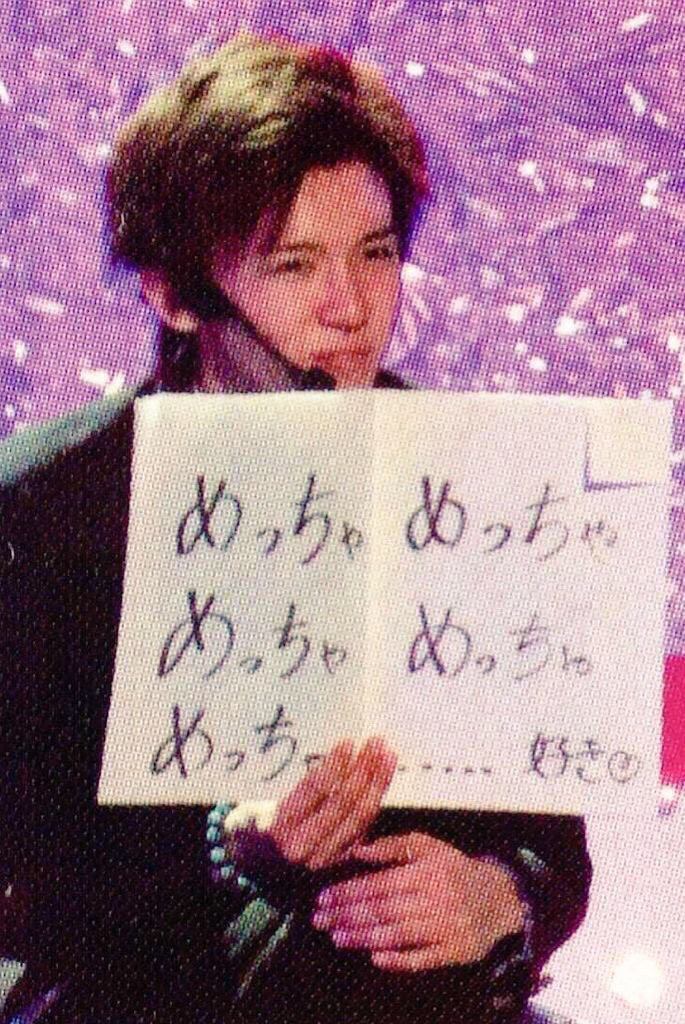 めっちゃ めっちゃ
めっちゃ めっちゃ
めっちゃ...... 好き